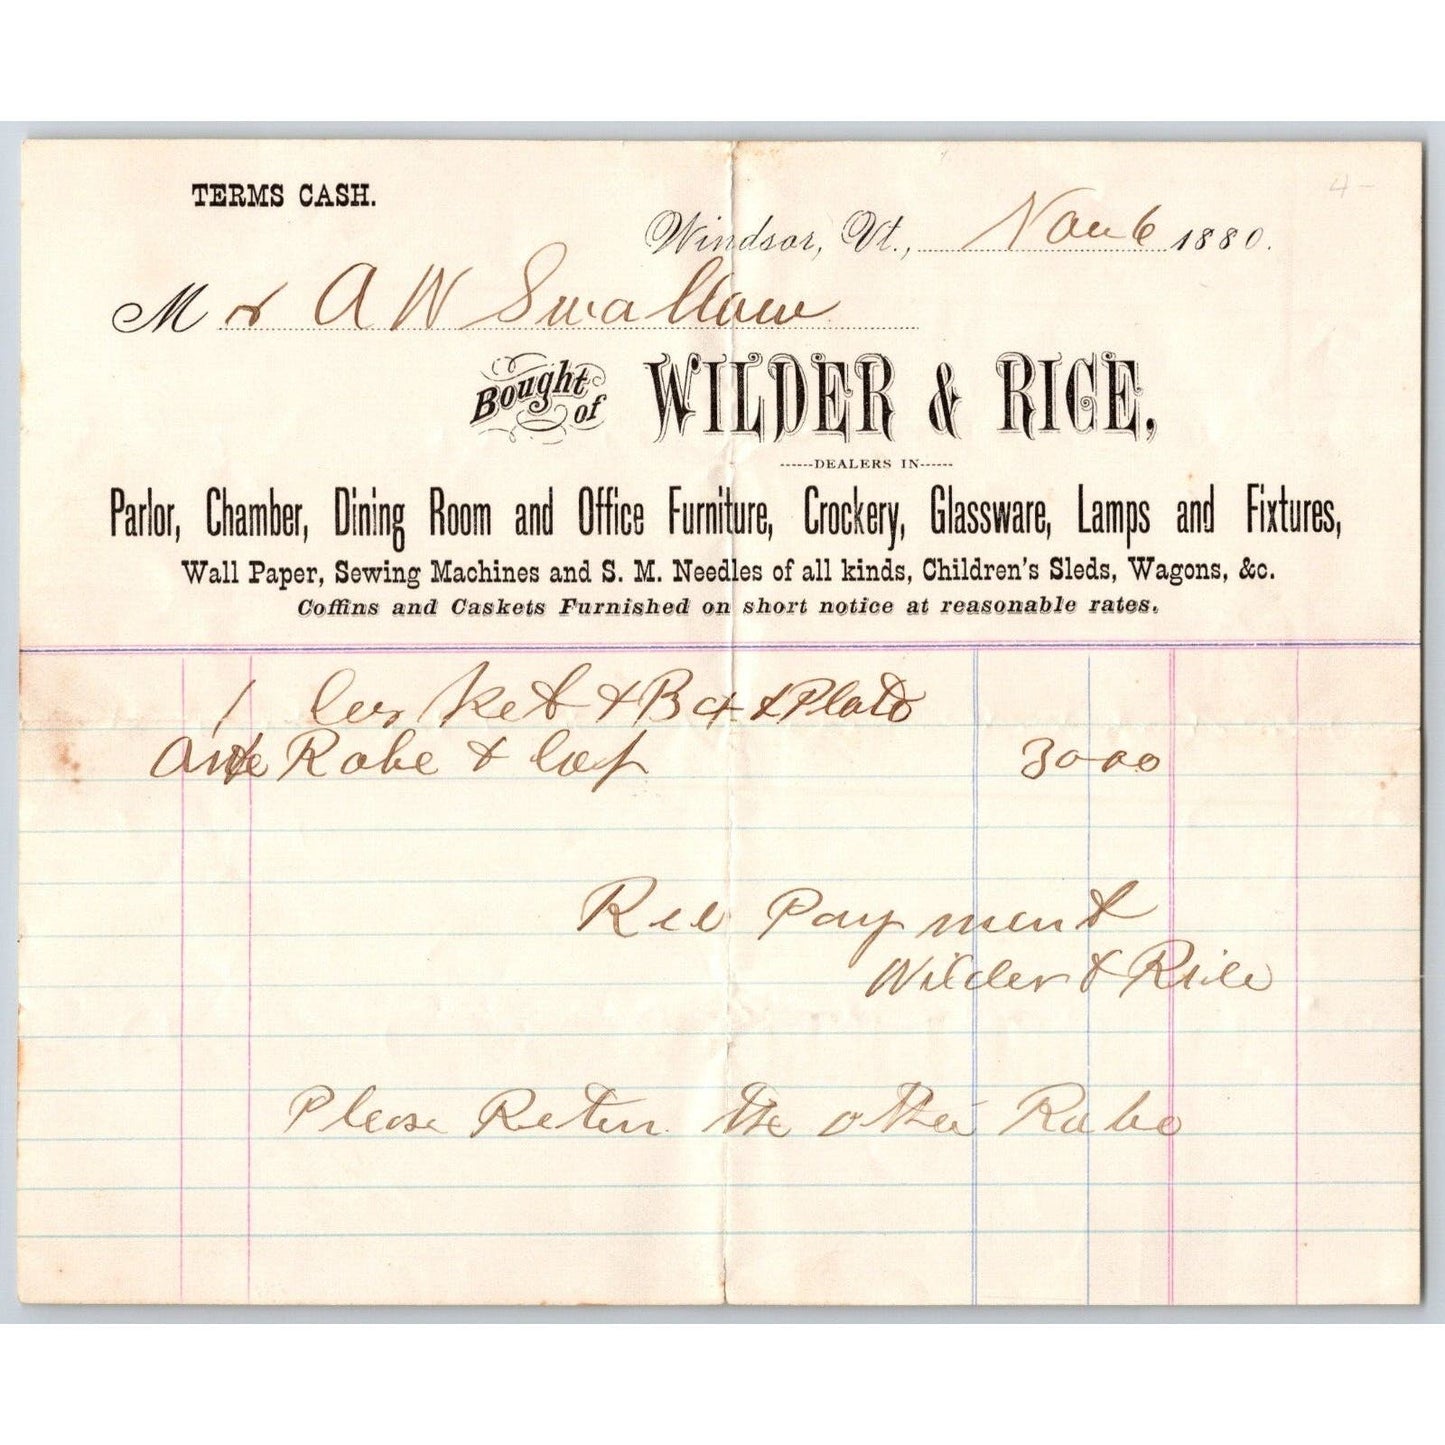 4-
TERMS CASH.
Windsor, Vt., Nov 6 1880.
Mr A W Swallow
Bought of WILDER & RICE,
DEALERS IN
Parlor, Chamber, Dining Room and Office Furniture, Crockery, Glassware, Lamps and Fixtures,
Wall Paper, Sewing Machines and S. M. Needles of all kinds, Children's Sleds, Wagons, &c.
Coffins and Caskets Furnished on short notice at reasonable rates.
1 Casket & Box & Plate
Robe & Cap 30 00
Rec Payment
Wilder & Rice
Please Return the other Robe